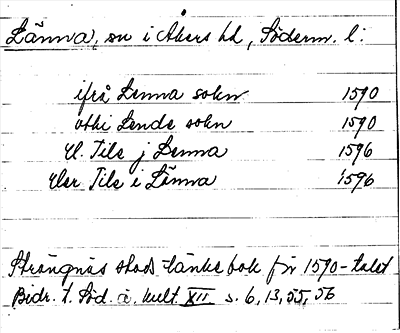 Länna, sn i Åkers hd, Söderm. l:
ifrå Lenna sokn 1590
vthi Lende sokn 1590
El. Tile j Lenna 1596
Eler Tile i Länna 1596
Strängnäs stads tänkebok för 1590-talet
Bidr. t. Söd. ä. kult. XII s. 6, 13, 55, 56